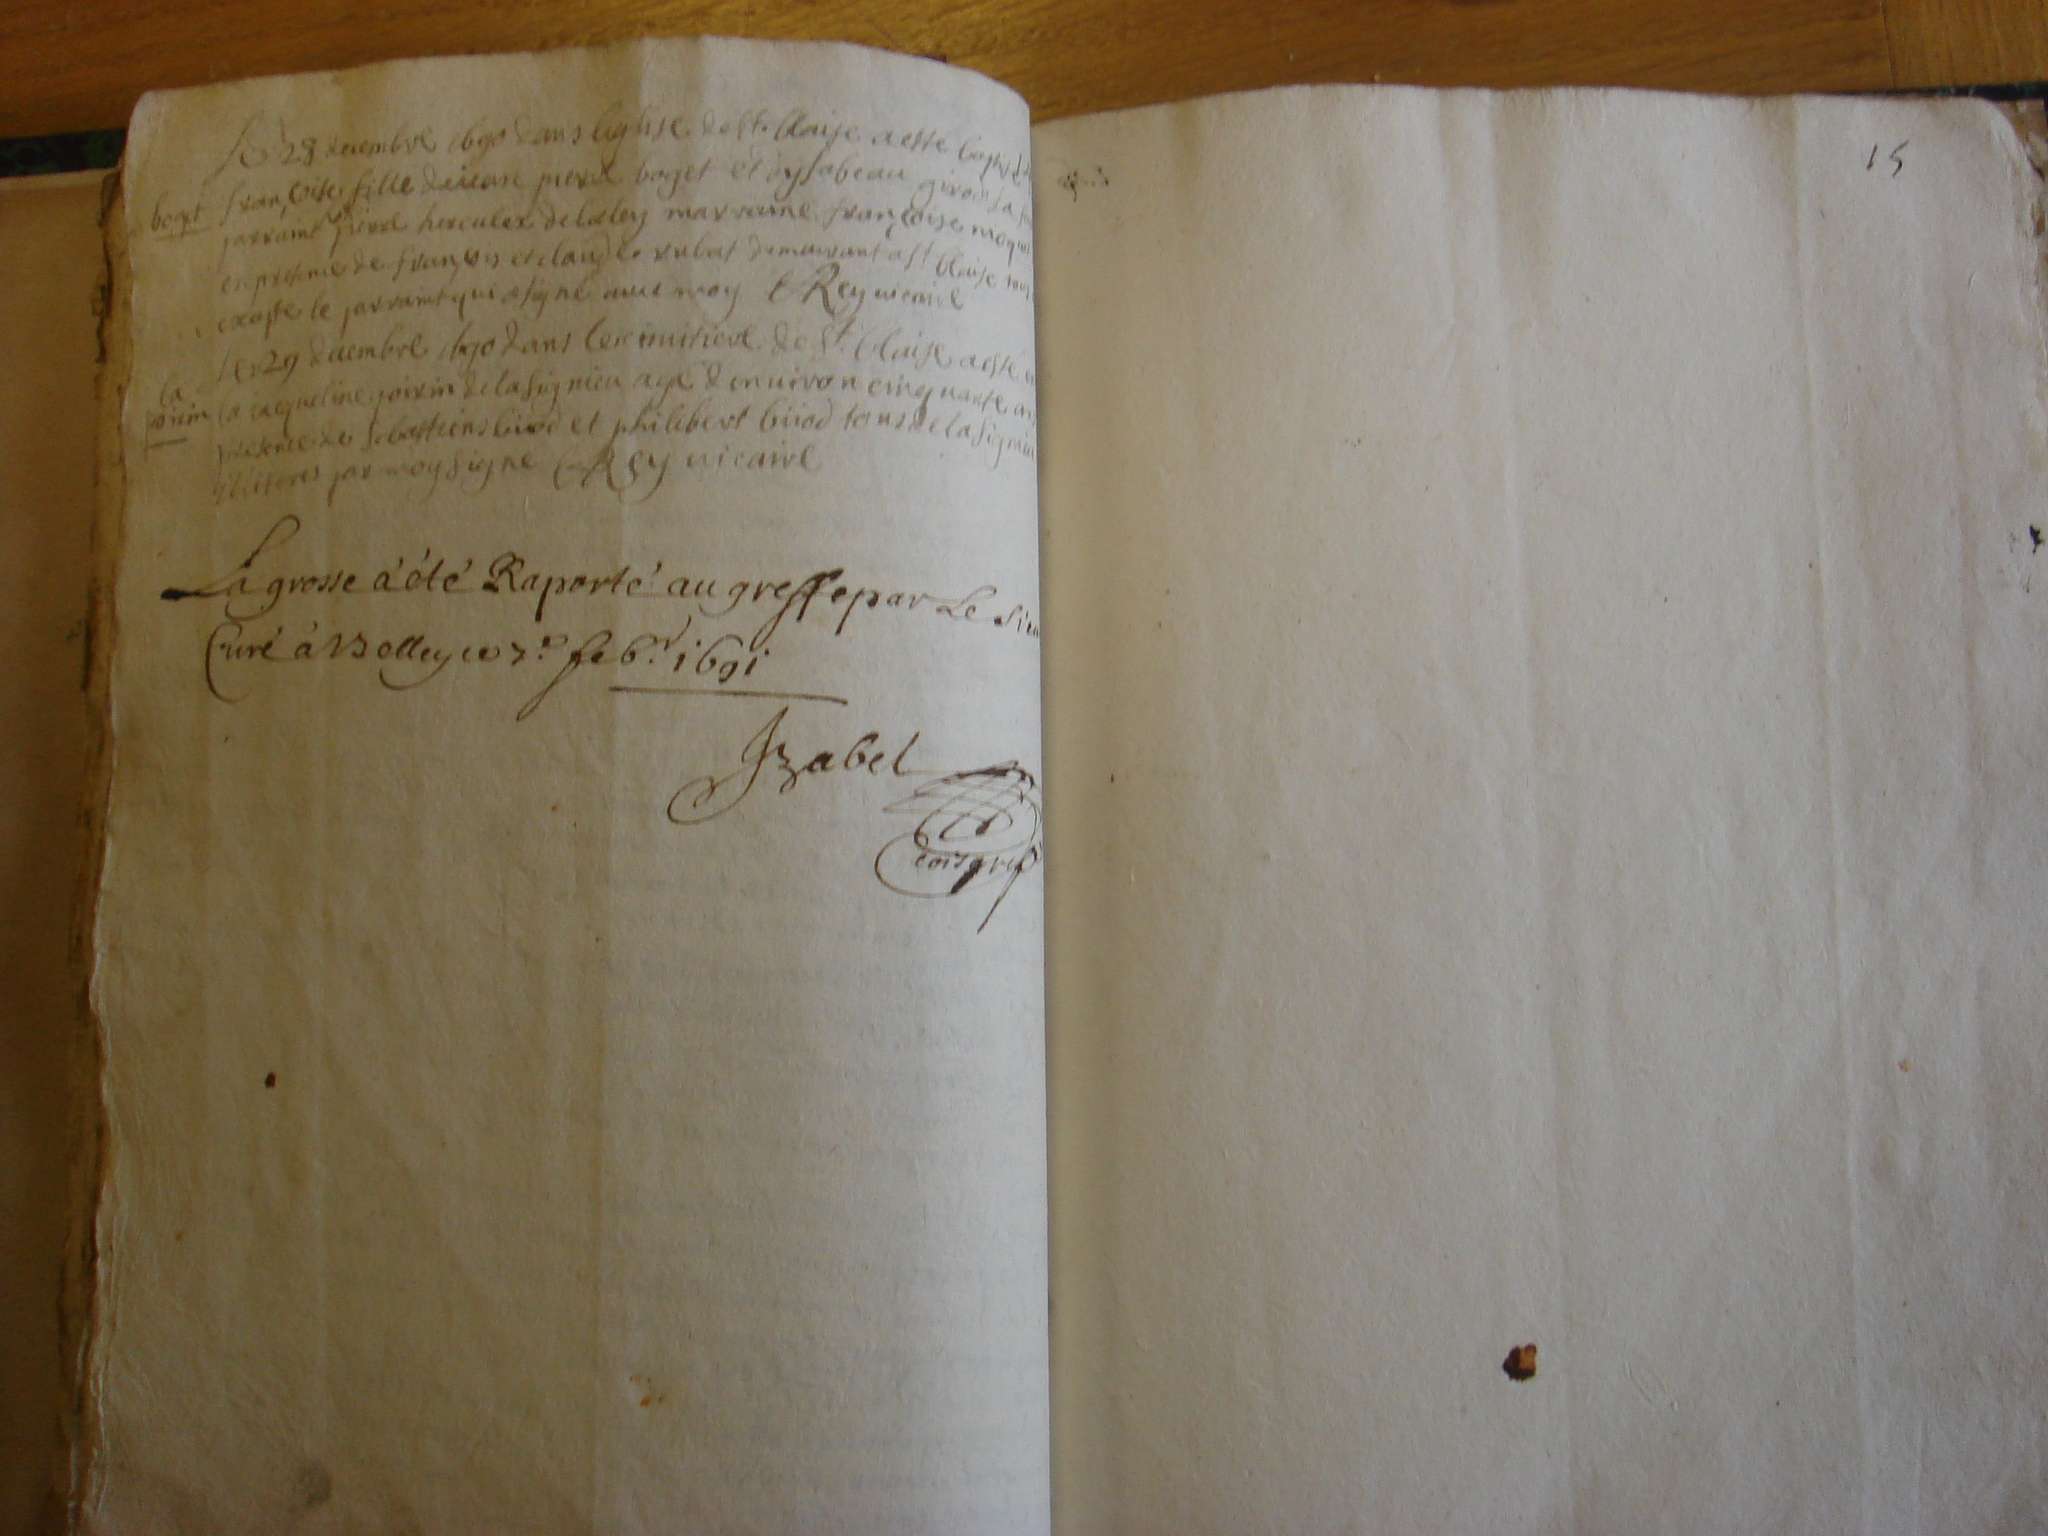 Le 28 decembre 1690 dans leglise de St. blaise a este baptisée
boget
françoise fille de iean pierre boget et dysabeau girod la
parrain pierre hercules delaley marraine françoise
en presence de françois et claude rubat demeurant a St blaise
excepte le parrain qui a signé avec moy Rey vicaire
Le 29 decembre 1690 dans le cimitiere de St. blaise a esté
la
poivin
la iaqueline poivin de lasignieu agé denviron cinquante
presence de sebastiens biiod et philibert biiod tous de lasignieu
illiteres par moy signe Rey vicaire
La grosse à été Raporté au greffe par Le Sieur
Curé à Belley ce 7.e feb.r 1691
Jzabel
15